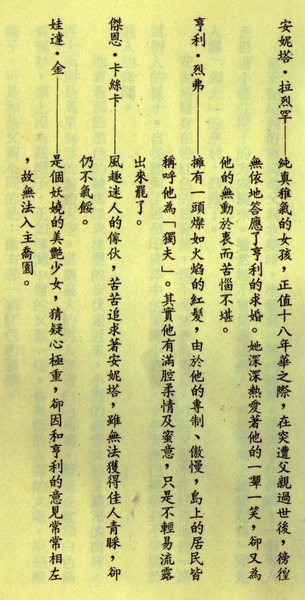 安妮塔‧拉烈罕──純真稚氣的女孩，正值十八年華之際，在突遭父親過世後，徬徨
無依地答應了亨利的求婚。她深深熱愛著他的一顰一笑，卻又為
他的無動於衷而苦惱不堪。
亨利‧烈弗──擁有一頭燦如火焰的紅髮，由於他的專制、傲慢，島上的居民皆
稱呼他為「獨夫」。其實他有滿腔柔情及蜜意，只是不輕易流露
出來罷了。
傑恩‧卡絲卡──風趣迷人的傢伙，苦苦追求著安妮塔，雖無法獲得佳人青睞，卻
仍不氣餒。
娃達‧金──是個妖嬈的美艷少女，猜疑心極重，卻因和亨利的意見常常相左
，故無法入主喬園。